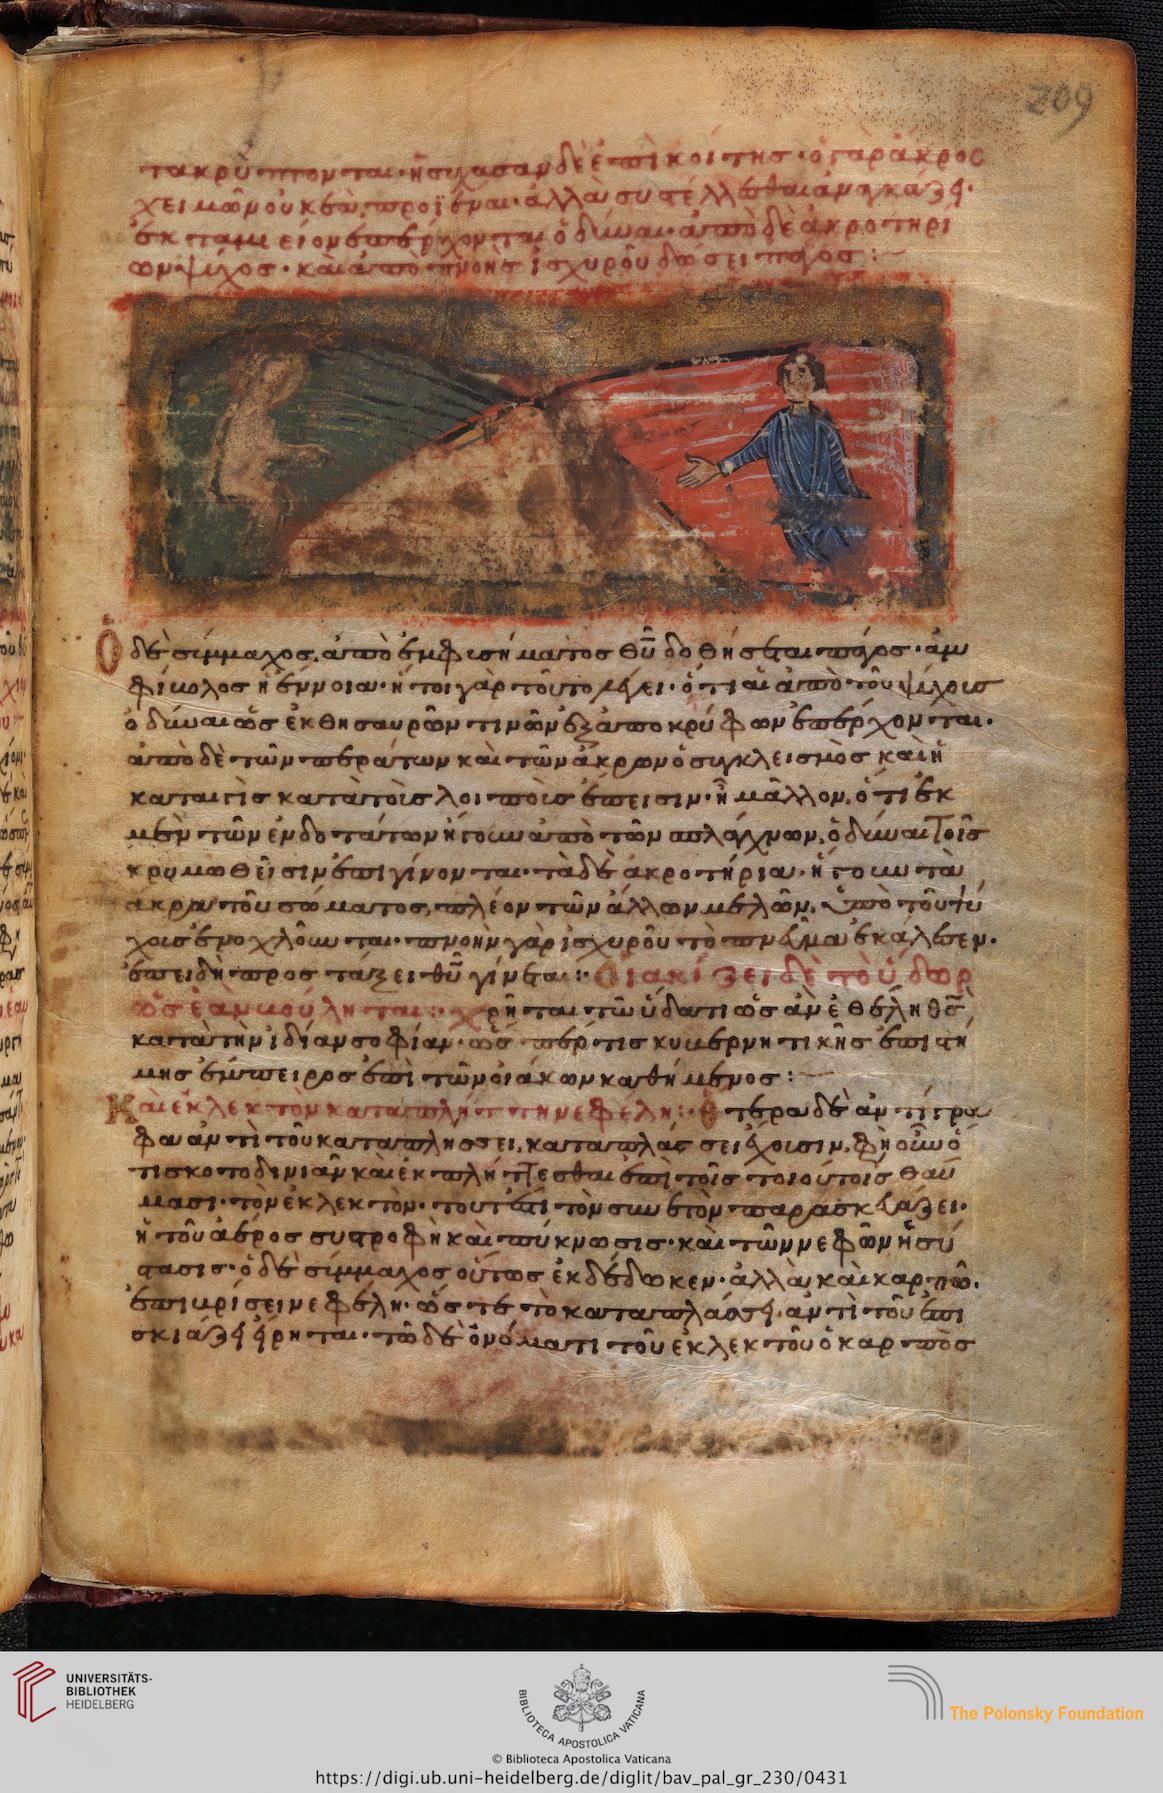 209
τα κρύπτονται· ἡσύχασαν δὲ ἐπὶ κοίτης· ὁ γὰρ ἄκρος
χειμὼν οὐκ ἐᾷ προϊέναι· ἀλλὰ συστέλλεσθαι ἀναγκάζει·
ἐκ ταμιείων ἐπέρχονται ὀδύναι· ἀπὸ δὲ ἀκροτηρί
ων ψῦχος· καὶ ἀπὸ πνοῆς ἰσχυροῦ δώσει πάγος:
Ὁ δὲ σύμμαχος, ἀπὸ ἐμφυσήματος θῦ δοθήσεται πάγος· ἀμ
φίβολος ἡ ἔννοια· ἤτοι γὰρ τοῦτο λέγει· ὅτι αἱ ἀπὸ τοῦ ψύχους
ὀδύναι ὡς ἐκ θησαυρῶν τινῶν ἐξ ἀποκρύφων ἐπέρχονται.
ἀπὸ δὲ τῶν περάτων καὶ τῶν ἄκρων ὁ συγκλεισμὸς καὶ ἡ
καταιγὶς κατὰ τοῖς λοιποῖς ἔπεισιν· ἢ μᾶλλον, ὅτι ἐκ
μὲν τῶν ἐνδοτάτων ἤγουν ἀπὸ τῶν σπλάγχνων, ὀδύναι τοῖς
κρυμωθεῖσιν ἐπιγίνονται· τὰ δὲ ἀκροτήρια· ἤγουν τὰ
ἄκρα τοῦ σώματος, πλέον τῶν ἄλλων μελῶν, ὑπὸ τοῦ ψύ
χους ἐνοχλοῦνται· πνοὴν γὰρ ἰσχυροῦ τὸ πνεῦμα ἐκάλεσεν.
ἐπειδὴ προστάξει θῦ γίνεται: Οἰακίζει δὲ τὸ ὕδωρ
ὡς ἐὰν βούληται: χρῆται τῷ ὕδατι ὡς ἂν ἐθέλῃ θς
κατὰ τὴν ἰδίαν σοφίαν· ὥσπέρ τις κυβερνητικῆς ἐπιστή
μης ἔμπειρος ἐπὶ τῶν οἰάκων καθήμενος:
Καὶ ἐκλεκτὸν καταπλήττει νεφέλη: ἕτερα δὲ ἀντίγρα
φα ἀντὶ τοῦ καταπλήσσει, καταπλάσσει ἔχουσιν, φησὶν οὖν ὅ
τι σκοτοδινιᾶν καὶ ἐκπλήττεσθαι ἐπὶ τοῖς τοιούτοις θαύ
μασι· τὸν ἐκλεκτὸν· τουτέστι τὸν συνετὸν παρασκευάζει·
ἡ τοῦ ἀέρος συστροφὴ καὶ πύκνωσις· καὶ τῶν νεφῶν ἡ σύ
στασις· ὁ δὲ σύμμαχος οὕτως ἐκδέδωκεν· ἀλλὰ καὶ καρπῷ.
ἐπιβρίσει νεφέλη· ὥς τε τὸ καταπλάσσει, ἀντὶ τοῦ ἐπι
σκιάζει εἴρηται· τῷ δὲ ὀνόματι τοῦ ἐκλεκτοῦ ὁ καρπὸς
UNIVERSITÄTS-
BIBLIOTHEK
HEIDELBERG
BIBLIOTECA APOSTOLICA VATICANA
The Polonsky Foundation
© Biblioteca Apostolica Vaticana
https://digi.ub.uni-heidelberg.de/diglit/bav_pal_gr_230/0431